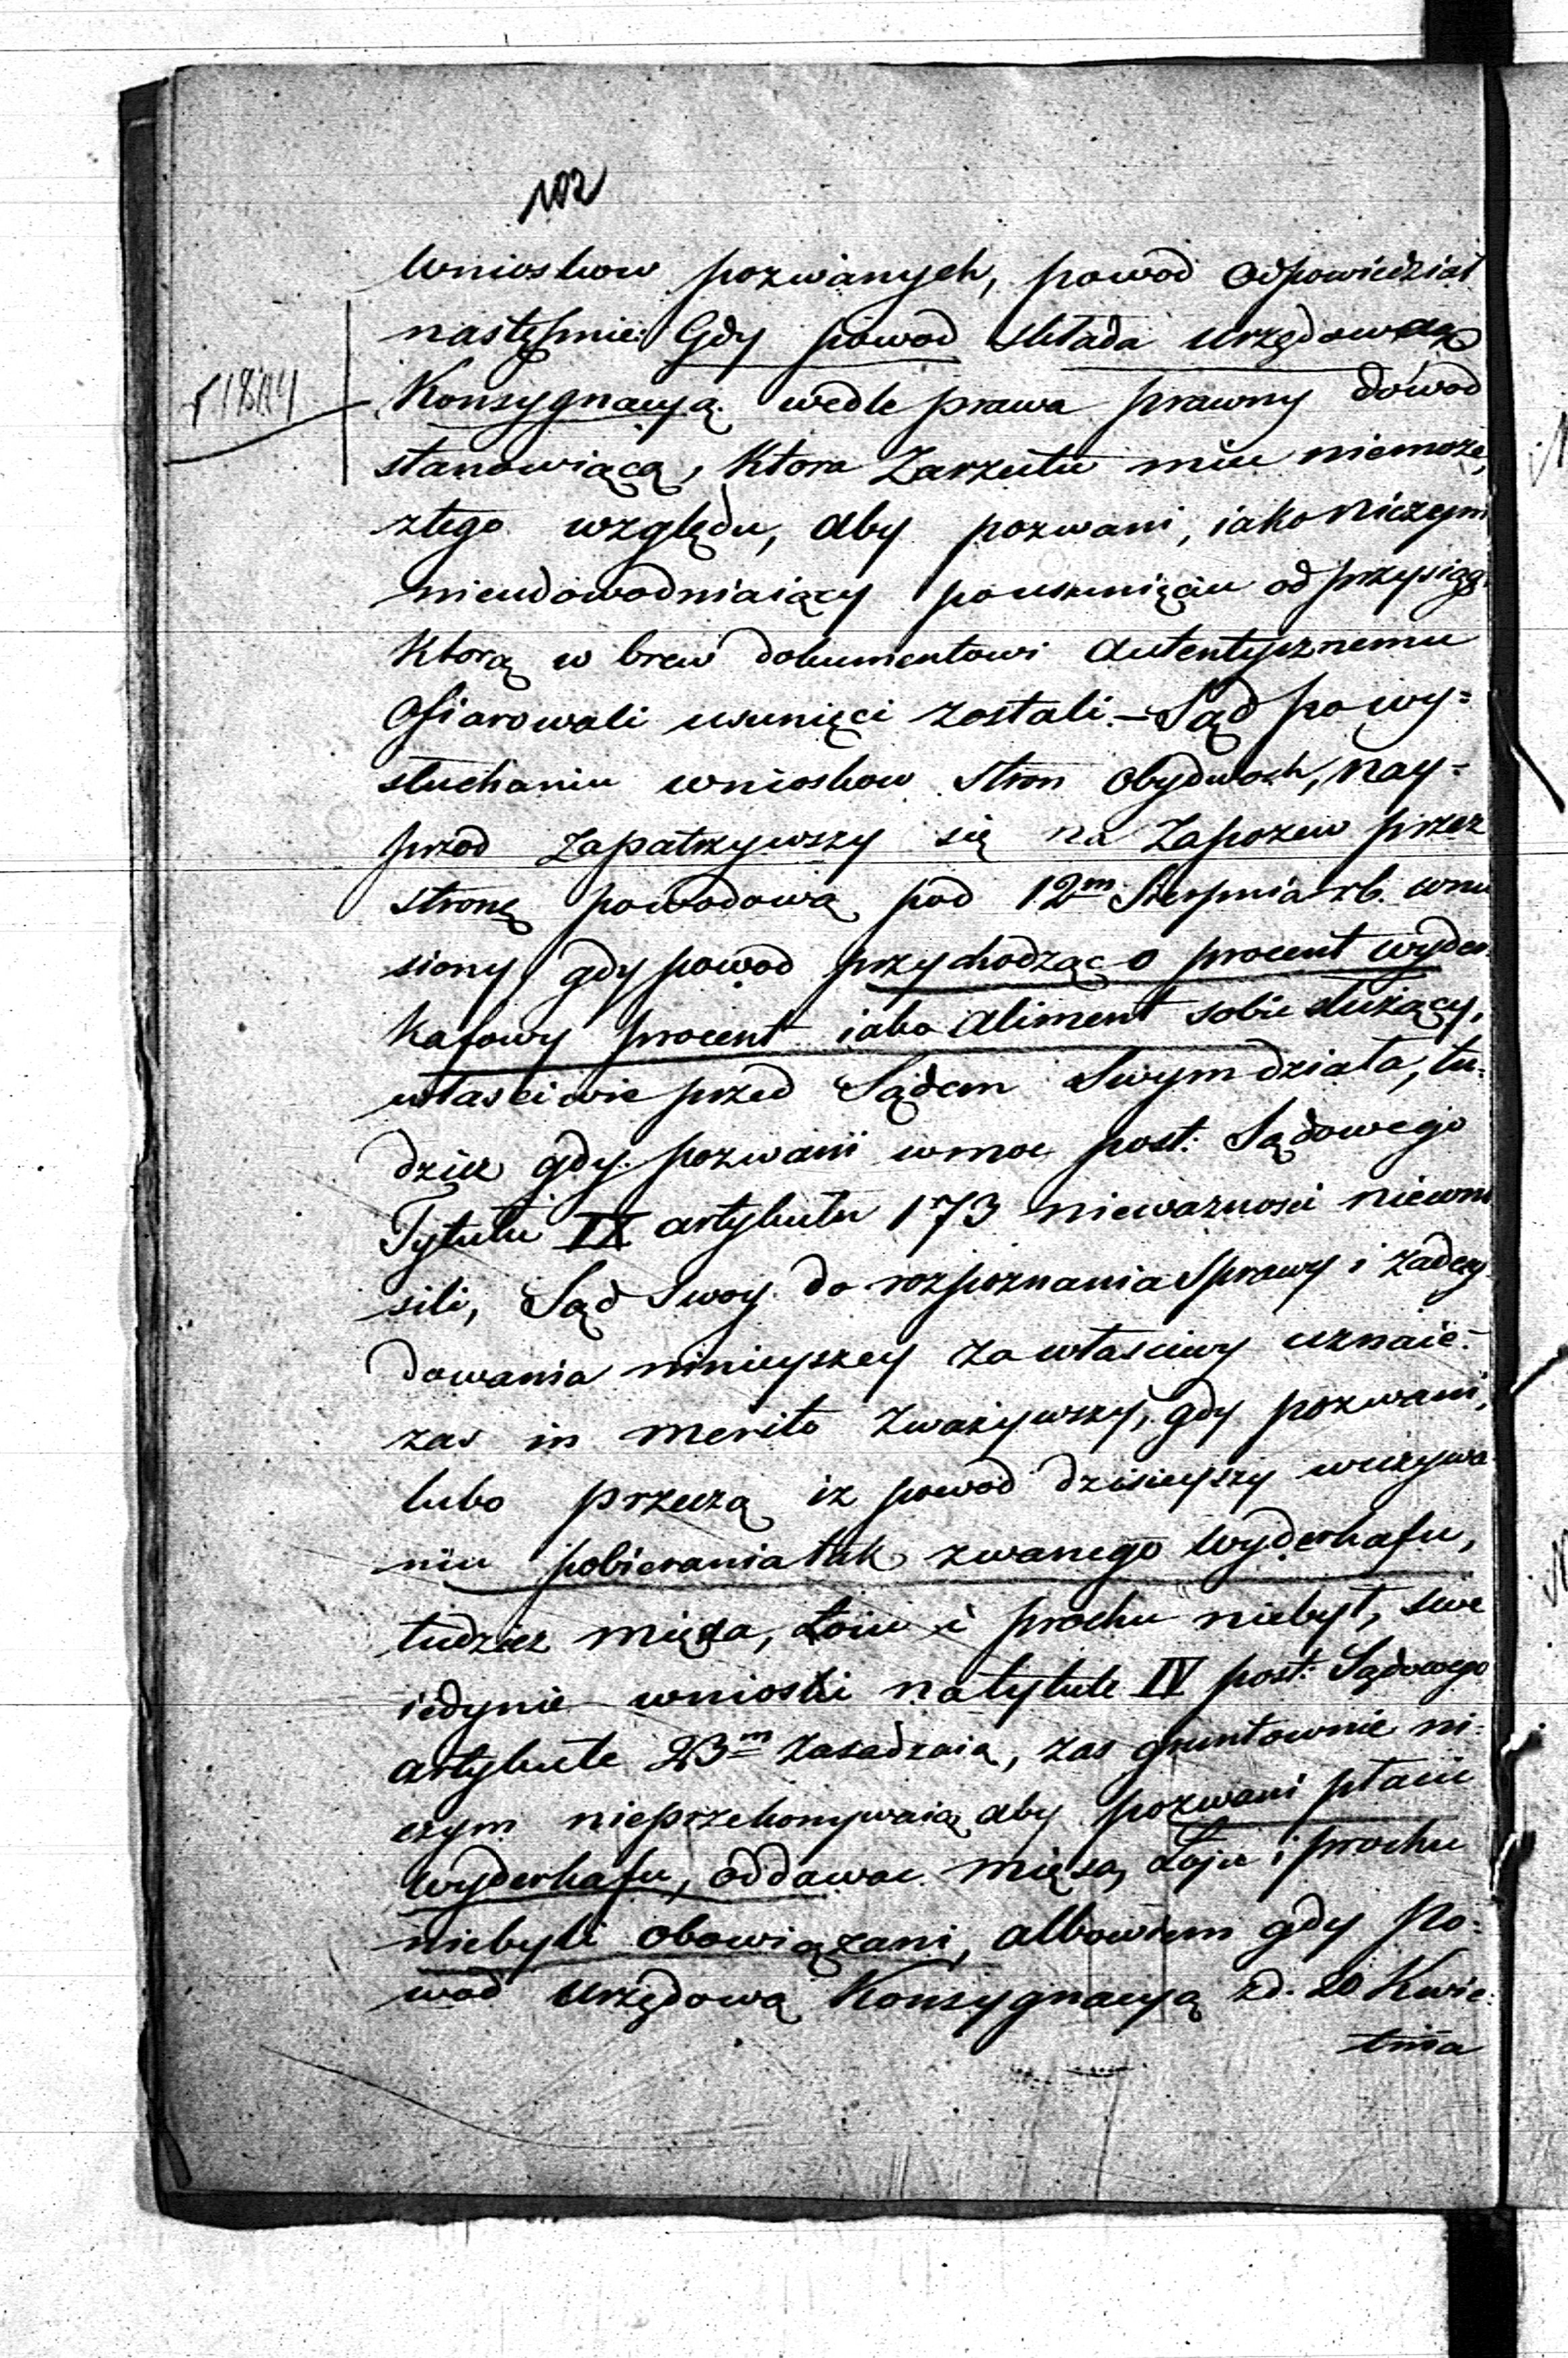 102
wnioskow pozwanych, powod odpowiedział
następnie: Gdy powod składa urzędową
Konsygnacyą wedle prawa prawny dowod
stanowiącą, ktora Zarzutu mieć niemoże,
ztego względu, aby pozwani, iako niczym
nieudowodniaiący po usunięciu od przysięgi
ktorą w brew dokumentowi autentycznemu
ofiarowali usunięci zostali. – Sąd po wy=
słuchaniu wnioskow stron obydwoch, nay=
przod zapatrzywszy się na Zapozew przez
stronę powodową pod 12m Sierpnia rb. wnie
siony gdy powod przychodząc o procent wyder
kafowy procent iako aliment sobie służący,
właściwie przed Sądem Swym działa, tu=
dzież gdy pozwani w moc post: Sądowego
Tytułu IX artykułu 173 nieważnosci niewnie
sili, Sąd Swoy do rozpoznania Sprawy i zadecy
dowania ninieyszey za właściwy uznaie –
zas in merito zważywszy, gdy pozwani,
lubo przeczą iz powod dzisieyszy w używa
niu pobierania tak zwanego wyderkafu,
tudzież mięsa, łoiu i prochu niebył, swe
iedynie wnioski na tytule IV post: Sądowego
artykule 23m zasadzaią, zas gruntownie ni=
czym nieprzekonywaią aby pozwani płacić
wyderkafu, oddawac mięsa, Łoju i prochu
niebyli obowiązani, albowiem gdy Po=
wod urzędową Konsygnacyą z d. 20 Kwie:
tnia